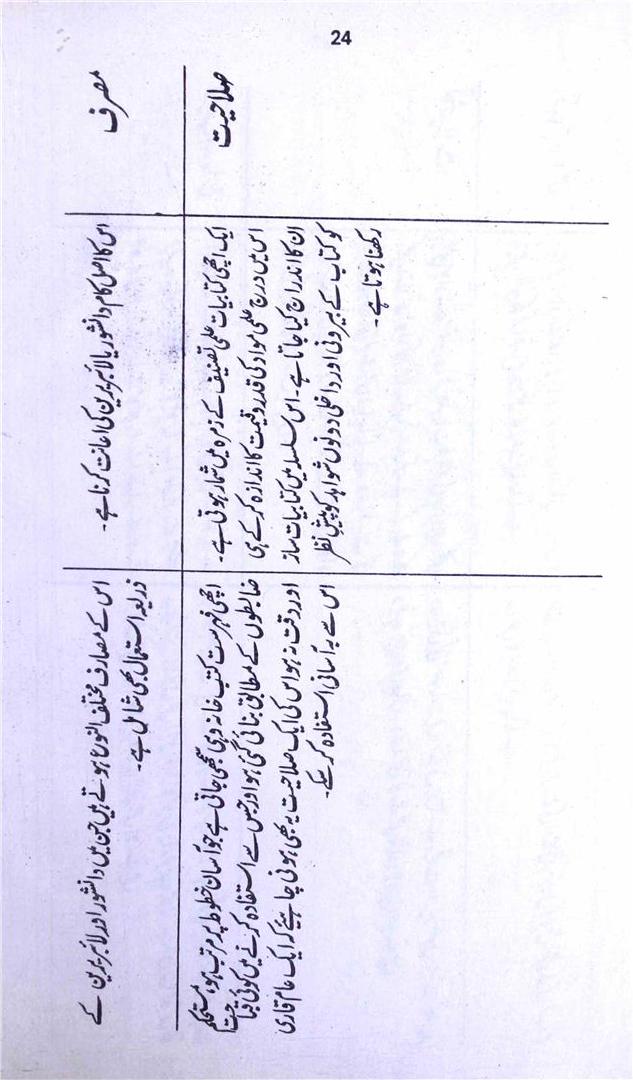 24
مصرف
اس کا اصل کام دانشور یا لائبریرین کی اعانت کرنا ہے۔
اس کے مصارف مختلف النوع ہوتے ہیں جن میں دانشور اور لائبریرین کے
ذریعہ استعمال بھی شامل ہے۔
صلاحیت
ایک اچھی کتابیات علمی تصنیف کے زمرہ میں شمار ہوتی ہے۔
اس میں درج علمی مواد کی قدر و قیمت کا اندازہ کر کے ہی
ان کا اندراج کیا جاتا ہے۔ اس سلسلہ میں کتابیات ساز
کو کتاب کے بیرونی اور داخلی دونوں شواہد کو پیش نظر
رکھنا ہوتا ہے۔
اچھی فہرست کتب خانہ وہی سمجھی جاتی ہے جو آسان خطوط پر مرتب ہو، مستحکم
ضابطوں کے مطابق بنائی گئی ہو اور جس سے استفادہ کرنے میں کوئی قباحت
اور دقت نہ ہو اس کی ایک صلاحیت یہ بھی ہونی چاہیئے کہ ایک عام قاری
اس سے بہ آسانی استفادہ کر سکے۔